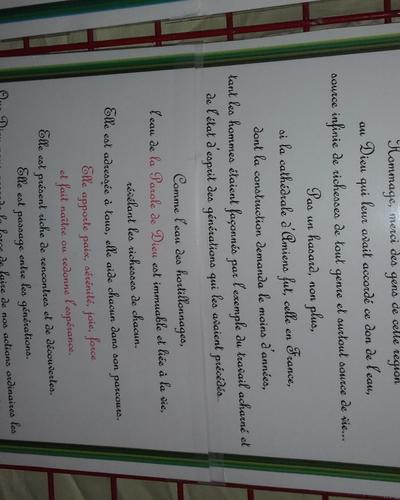 Hommage, merci des gens de cette région
au Dieu qui leur avait accordé ce don de l'eau,
source infinie de richesses de tout genre et surtout source de vie...
Pas un hasard, non plus,
si la cathédrale d'Amiens fut, celle en France,
dont la construction demanda le moins d'années,
tant les hommes étaient façonnés par l'exemple du travail acharné et
de l'état d'esprit des générations qui les avaient précédés.
Comme l'eau des hortillonnages,
l'eau de la Parole de Dieu est immuable et liée à la vie,
révélant les richesses de chacun.
Elle est adressée à tous, elle aide chacun dans son parcours.
Elle apporte paix, sérénité, joie, force
et fait naître ou redonne l'espérance.
Elle est présent riche de rencontres et de découvertes.
Elle est passage entre les générations.
Que Dieu nous accorde la force de faire de nos actions ordinaires les